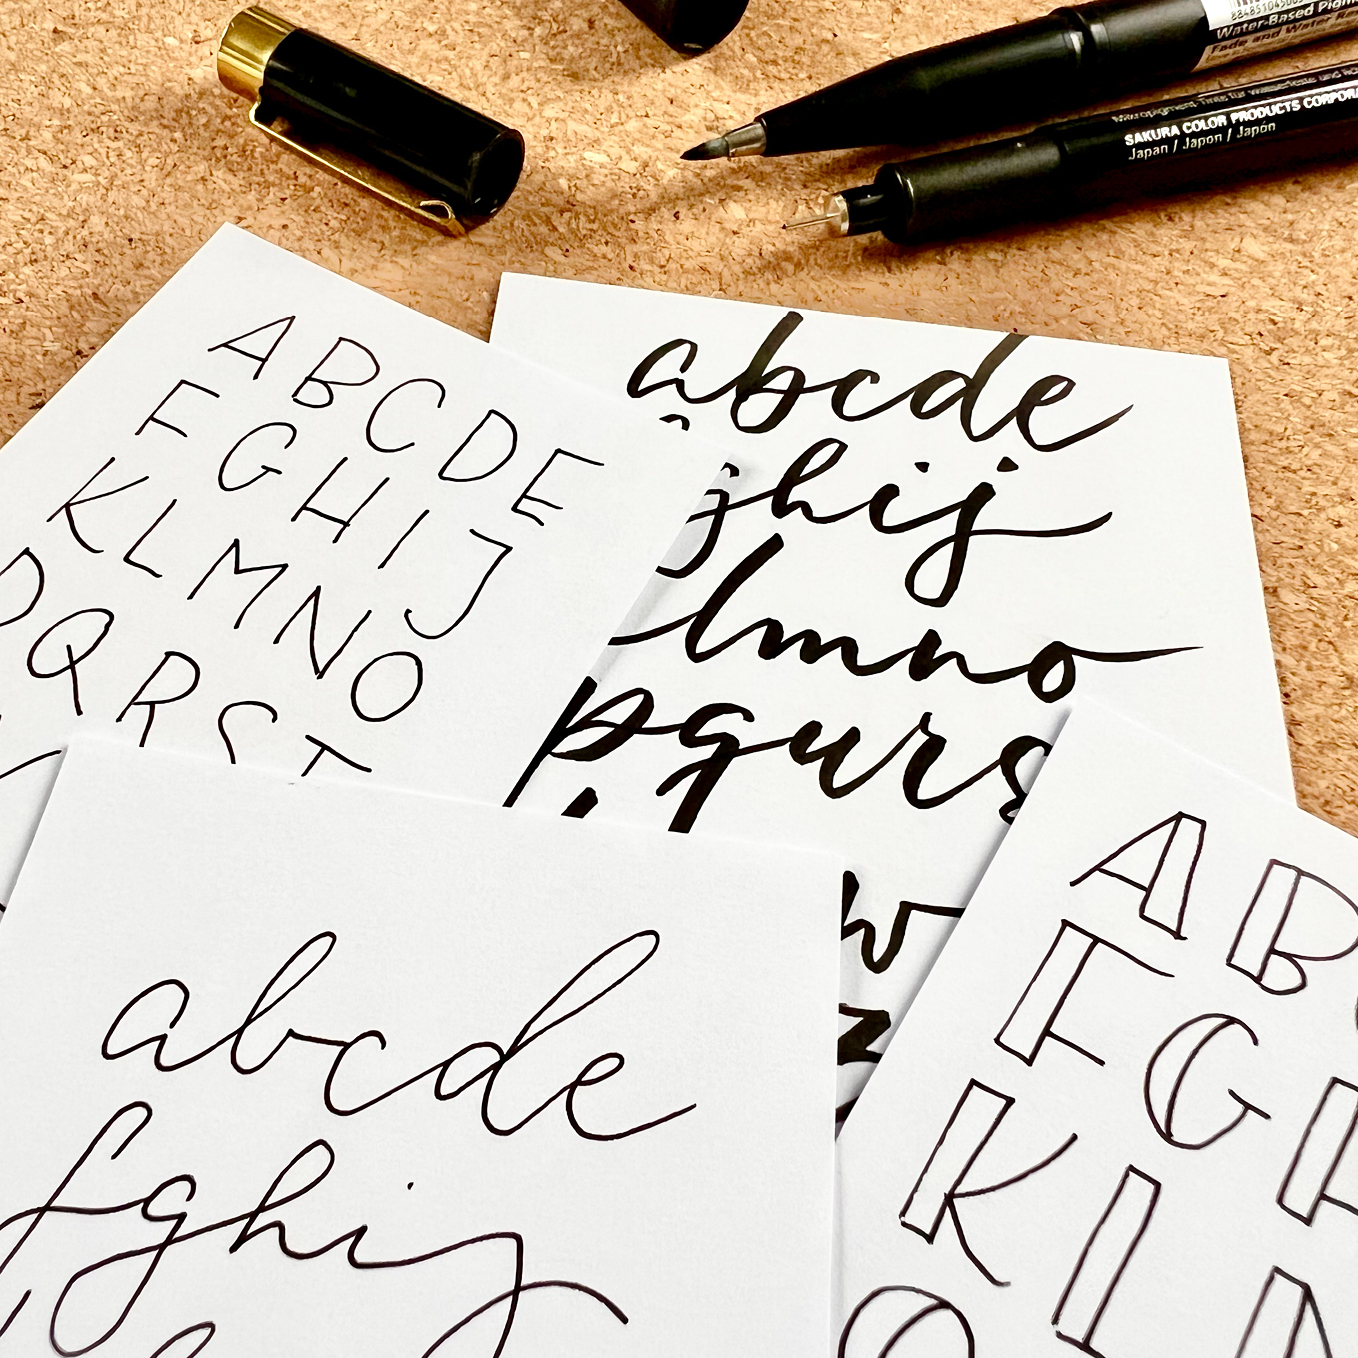 Water-Based Pigm
Fade and Water Re
SAKURA COLOR PRODUCTS CORPORA
Japan / Japon / Japón
A B C D E
F G H I J
K L M N O
P Q R S T
abcde
ghij
lmno
pqurs
w
z
abcde
fghij
A B
F G
K L